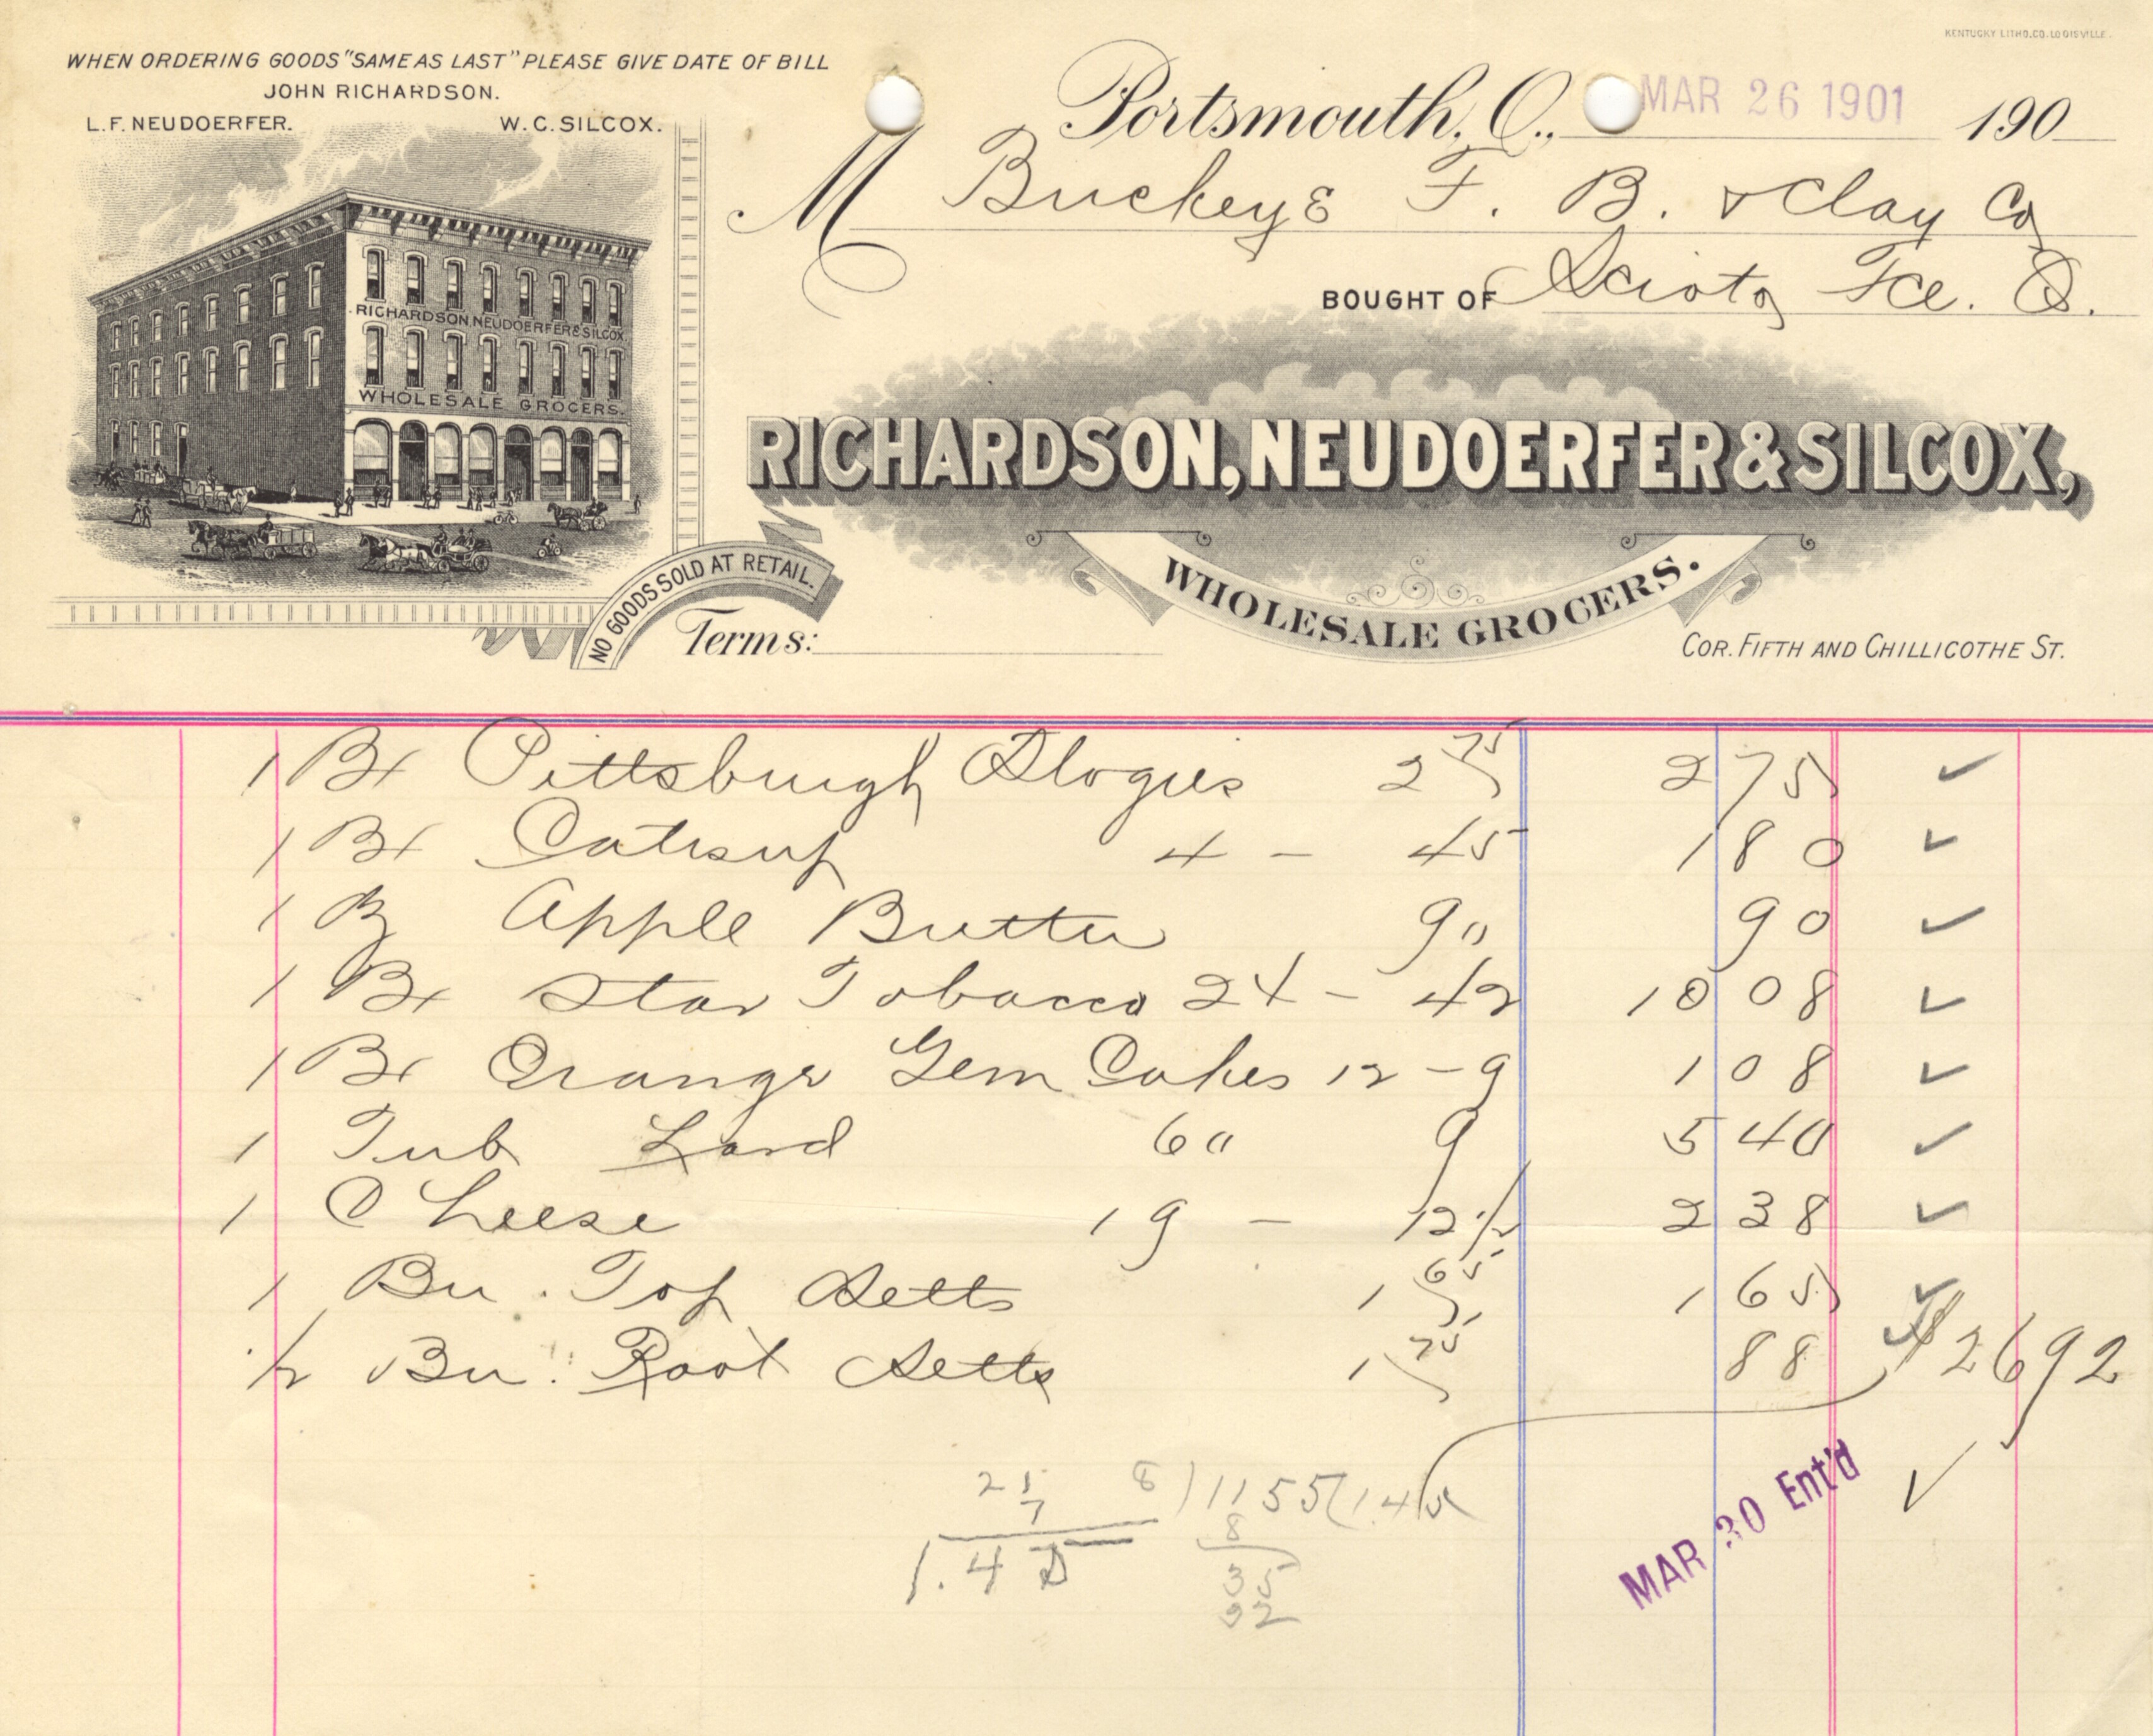 KENTUCKY LITHO.CO.LOUISVILLE.
WHEN ORDERING GOODS "SAME AS LAST" PLEASE GIVE DATE OF BILL
JOHN RICHARDSON.
L.F. NEUDOERFER. W.C. SILCOX.
Portsmouth, O., MAR 26 1901 190
M Buckeye F. B. & Clay Co
BOUGHT OF Scioto Fce. O.
RICHARDSON, NEUDOERFER & SILCOX
WHOLESALE GROCERS.
RICHARDSON, NEUDOERFER & SILCOX,
WHOLESALE GROCERS.
NO GOODS SOLD AT RETAIL.
Terms:
COR. FIFTH AND CHILLICOTHE ST.
1 Bx Pittsburgh Stogies 2 75 2 75
1 Bx Catsup 4 - 45 1 80
1 B Apple Butter 90 90
1 Bx Star Tobacco 24 - 42 10 08
1 Bx Orange Gem Cakes 12 - 9 1 08
1 Tub Lard 60 9 5 40
1 Cheese 19 - 12 1/2 2 38
1 Bu. Top Setts 1 65 1 65
1/2 Bu. Root Setts 1 75 88
$26 92
21 8)1155(1.4
7 8
1.4 35
32
MAR 30 Ent'd